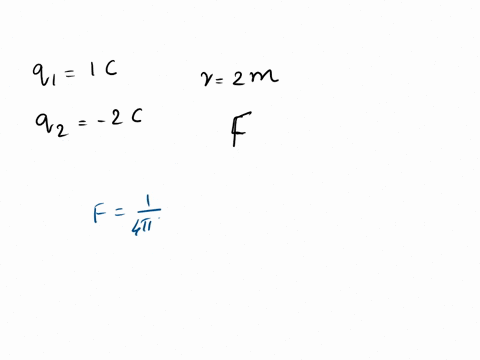 q₁ = 1 C
r = 2 m
q₂ = -2 C
F
F = 1/4π